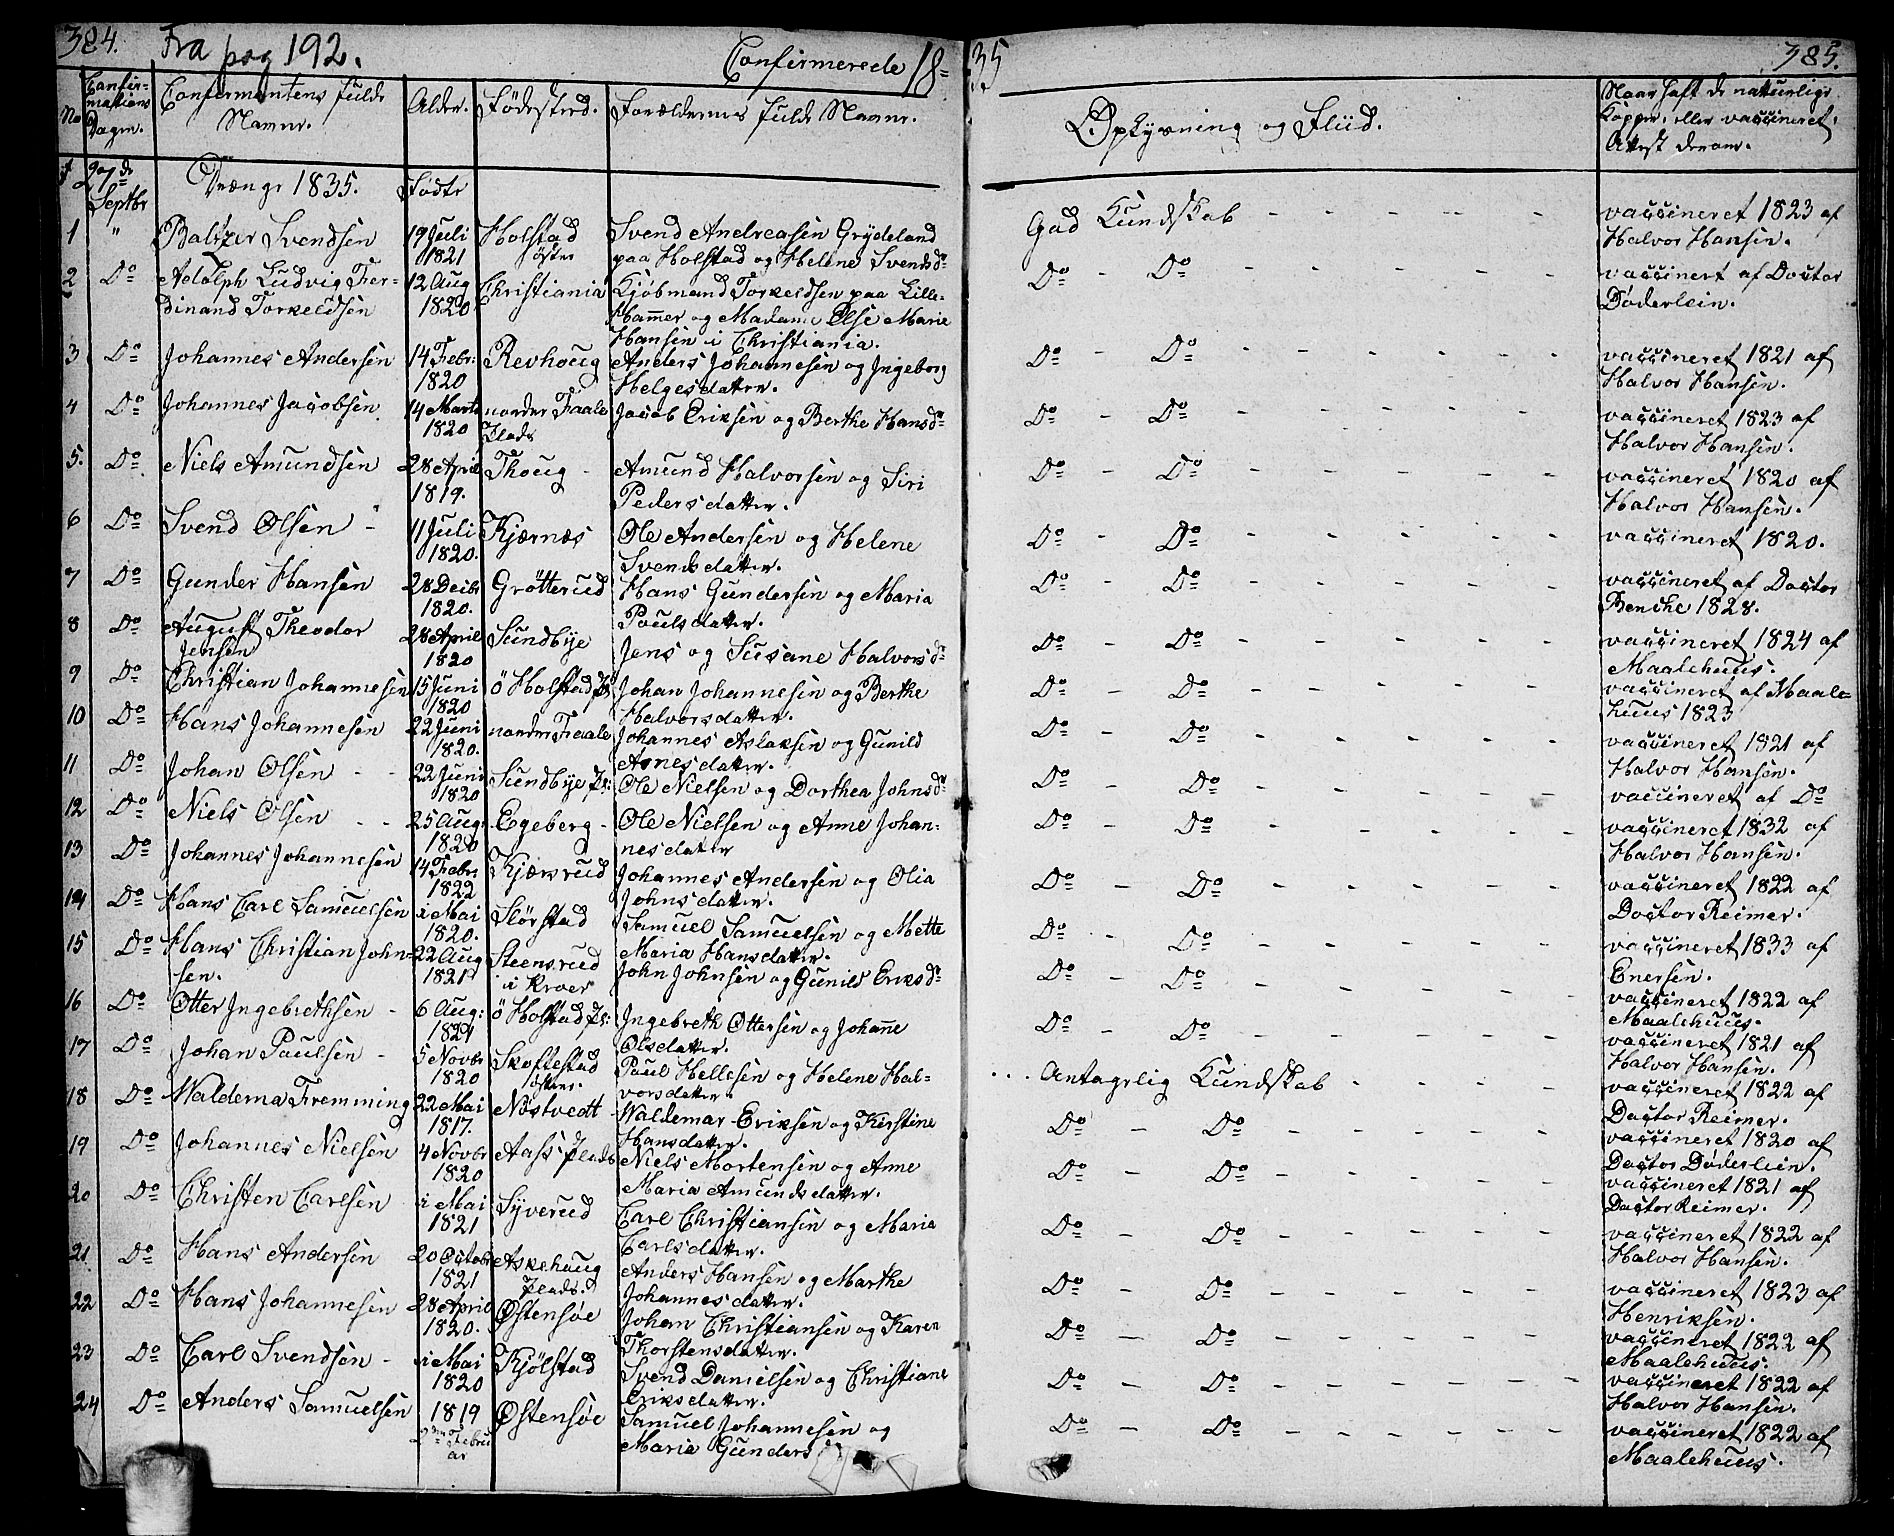 384. Fra pag 192. Confirmerede 18=
No Confir-mations Dagen. Confirmantens fulde Namne. Alder. Fødested. Forældernes fulde Namne.
27de Septbr Drænge 1835. Fødte
1 " Baltzer Svendsen 19 Juli 1821 Holstad østre Svend Andreasen Grydeland paa Holstad og Helene Svendsdr
2 Do Adolph Ludvig Ferdinand Torkeldsen 12 Aug 1820 Christiania Kjøbmand Torkeldsen paa Lille-Hammer og Madame Else Marie Hansen i Christiania.
3 Do Johannes Andersen 14 Febr: 1820 Revhoug Anders Johannesen og Ingeborg Helgesdatter.
4 Do Johannes Jacobsen 14 Marts 1820 nordre Faale Plads Jacob Eriksen og Berthe Hansdr
5. Do Niels Amundsen 28 April 1819. Thoug - Amund Halvorsen og Siri Pedersdatter.
6 Do Svend Olsen - 11 Juli 1820. Kjærnæs Ole Andersen og Helene Svendsdatter.
7 Do Gunder Hansen 28 Decbr 1820. Grøtterud Hans Gundersen og Maria Poulsdatter.
8 Do August Theodor Jensen 28 April 1820 Sundbye Jens og Susane Halvorsdr
9 Do Christian Johannesen 15 Juni 1820 ø Holstad Pl Johan Johannesen og Berthe Halvorsdatter.
10 Do Hans Johannesen 22 Juni 1820. nordre Faale Johannes Aslaksen og Gunild Asnesdatter.
11 Do Johan Olsen - - 22 Juni 1820 Sundbye Pl: Ole Nielsen og Dorthea Johnsdr
12 Do Niels Olsen - - 25 Aug: 1820 Egeberg - Ole Nielsen og Anne Johan-nesdatter
13 Do Johannes Johannesen 14 Febr 1822 Kjærsrud Johannes Andersen og Olia Johnsdatter.
14 Do Hans Carl Samuelsen i Mai 1820. Slørstad Samuel Samuelsen og Mette Maria Hansdatter.
15 Do Hans Christian John=sen. 22 Aug 1821 Steensrud i Kroer John Johnsen og Gunild Eriksdr
16 Do Otter Ingebrethsen - 6 Aug: 1821 ø Holstad Pl: Ingebreth Ottersen og Johanne Olsdatter.
17 Do Johan Paulsen - 5 Novbr 1820 Skoftestad østre. Paul Hellesen og Helene Hal-vorsdatter.
18 Do Waldema Fremming 22 Mai 1817. Nøstvedt Waldemar Eriksen og Kirstine Hansdatter.
19 Do Johannes Nielsen 4 Novbr 1820 Aass Plads Niels Mortensen og Anne Maria Amundsdatter.
20 Do Christen Carlsen i Mai 1821 Syverud Carl Christiansen og Maria Carlsdatter.
21 Do Hans Andersen 20 Octobr 1821 Askehaug Plads. Anders Hansen og Marthe Johannesdatter.
22 Do Hans Johannesen 28 April 1820. Østensøe Johan Christiansen og Karen Thorstensdatter.
23 Do Carl Svendsen - i Mai 1820 Kjølstad Svend Danielsen og Christiane Eriksdatter.
24 Do Anders Samuelsen 1819 2den Februar Østensøe Samuel Johannesen og Maria Gunders
35 385.
Oplysning og Fliid. Naar haft de naturlige Kopper, eller vaccineret, Attest derom.
God Kundskab - - - - - vaccineret 1823 af Halvor Hansen.
Do - Do - - - - - vaccinert af Doctor Døderlein.
Do - Do - - - - - vaccineret 1821 af Halvor Hansen.
Do - Do - - - - - vaccineret 1823 af Halvor Hansen.
Do - Do - - - - - vaccineret 1820 af Halvor Hansen.
Do - Do - - - - - vaccineret 1820.
Do - Do - - - - - vaccineret af Doctor Bencke 1828.
Do - Do - - - - - vaccineret 1824 af Maalehuus
Do - Do - - - - - vaccineret af Maale=huus 1823
Do - Do - - - - - vaccineret 1821 af Halvor Hansen.
Do - Do - - - - - vaccineret af Do
Do - Do - - - - - vaccineret 1832 af Halvor Hansen.
Do - Do - - - - - vaccineret 1822 af Doctor Reimer.
Do - Do - - - - - vaccineret 1833 af Enersen.
Do - Do - - - - - vaccineret 1822 af Maalehuus.
Do - Do - - - - - vaccineret 1821 af Halvor Hansen.
... Antagelig Kundskab - - - - vaccineret 1822 af Doctor Reimer.
Do - Do - - - - - vaccineret 1820 af Doctor Døderlein.
Do - Do - - - - - vaccineret 1821 af Doctor Reimer.
Do - Do - - - - - vaccineret 1822 af Halvor Hansen.
Do - Do - - - - - vaccineret 1823 af Henriksen.
Do - Do - - - - - vaccineret 1822 af Maalehuus.
Do - Do - - - - - vaccineret 1822 af Halvor Hansen.
Do - Do - - - - - vaccineret 1822 af Maalehuus.